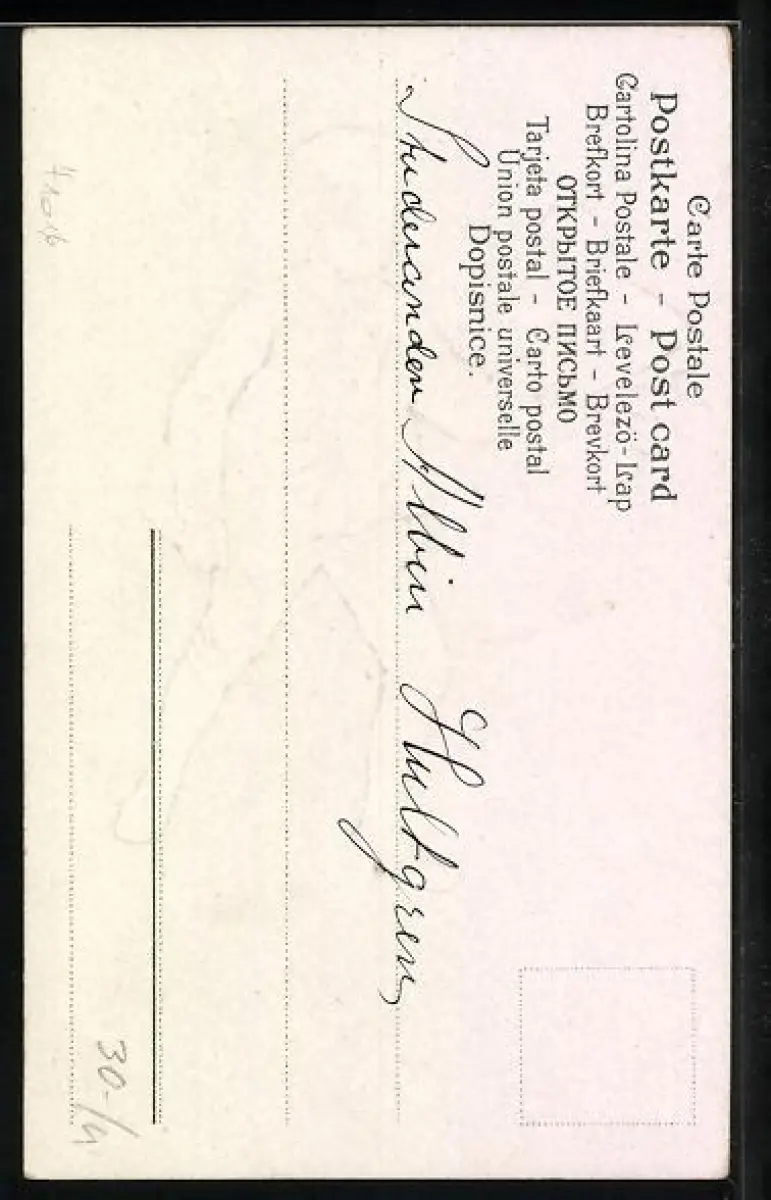 Carte Postale
Postkarte - Post card
Cartolina Postale - Levelezö-Lap
Brefkort - Briefkaart - Brevkort
ОТКРЫТОЕ ПИСЬМО
Tarjeta postal - Carto postal
Union postale universelle
Dopisnice.
Studeranden Albin Hultgren,
30-/4